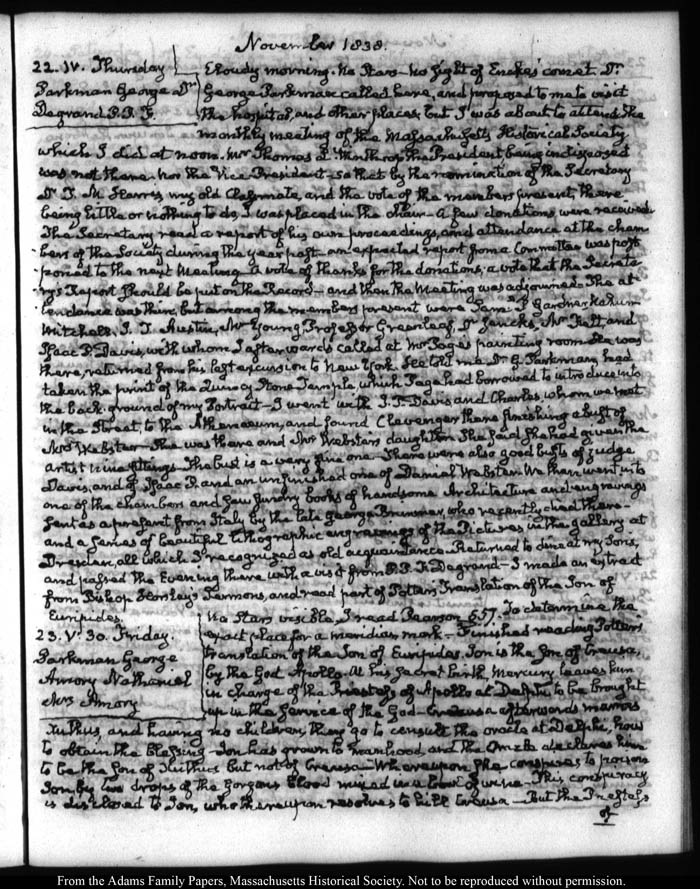 November 1838.
22. IV. Thursday
Parkman George Dr
Degrand P. P. F.
Cloudy morning. No Stars—no sight of Encke's comet. Dr
George Parkman called here, and proposed to me to visit
the hospital, and other places; but I was about to attend the
monthly meeting of the Massachusetts Historical Society
which I did at noon. Mr Thomas L. Winthrop the President being indisposed
was not there. nor the Vice President—so that by the nomination of the Secretary
Dr T. M. Harris, my old Classmate, and the vote of the members present, there
being little or nothing to do, I was placed in the chair—A few donations were received.
The Secretary read a report of his own proceedings, and attendance at the cham-
bers of the Society during the year past—an expected report from a Committee was post-
poned to the next Meeting—a vote of thanks for the donations, a vote that the Secreta-
ry's Report should be put on the Record—and then the Meeting was adjourned. The at-
tendance was thin, but among the members present were Saml. P. Gardner, Nahum
Mitchell, J. T. Austin, Mr Young, Professor Greenleaf, Dr Jenks, Mr Felt and
Isaac P. Davis, with whom I afterwards called at Mr Page's painting room. He was
there, returned from his last excursion to New York. He told me Dr G. Parkman had
taken the print of the Quincy Stone Temple which Page had borrowed to introduce into
the back ground of my Portrait—I went with I. P. Davis and Charles, whom we met
in the Street, to the Athenaeum, and found Clevenger there finishing a bust of
Mrs Webster—She was there and Mr Webster's daughter. She said she had given the
artist nine sittings. The bust is a very fine one—There were also good busts of Judge
Davis, and of Isaac P. and an unfinished one of Daniel Webster. We then went into
one of the chambers and saw sundry books of handsome Architecture and engravings
sent as a present from Italy by the late George Brimmer, who recently died there—
and a series of beautiful lithographic engravings of the Pictures in the gallery at
Dresden, all which I recognized as old acquaintance. Returned to dine at my Son's,
and passed the Evening there with a visit from P. P. F. Degrand—I made an extract
from Bishop Horsley's Sermons, and read part of Potter's Translation of the Ion of
Euripides.
23. V. 30. Friday.
Parkman George
Amory Nathaniel
Mrs Amory
No Stars visible, I read Pearson 657. To determine the
exact place for a meridian mark—Finished reading Potter's
translation of the Ion of Euripides. Ion is the Son of Creusa,
by the God Apollo. At his secret birth, Mercury leaves him
in charge of the Priestess of Apollo at Delphi, to be brought
up in the service of the God—Creusa afterwards marries
Xuthus, and having no children, they go to consult the oracle at Delphi, how
to obtain the blessing—Ion has grown to manhood, and the Oracle declares him
to be the Son of Xuthus but not of Creusa—Whereupon she conspires to poison
Ion by two drops of the Gorgon's blood mixed in a bowl of wine—This conspiracy
is disclosed to Ion, who thereupon resolves to kill Creusa—But the Priestess
of
From the Adams Family Papers, Massachusetts Historical Society. Not to be reproduced without permission.